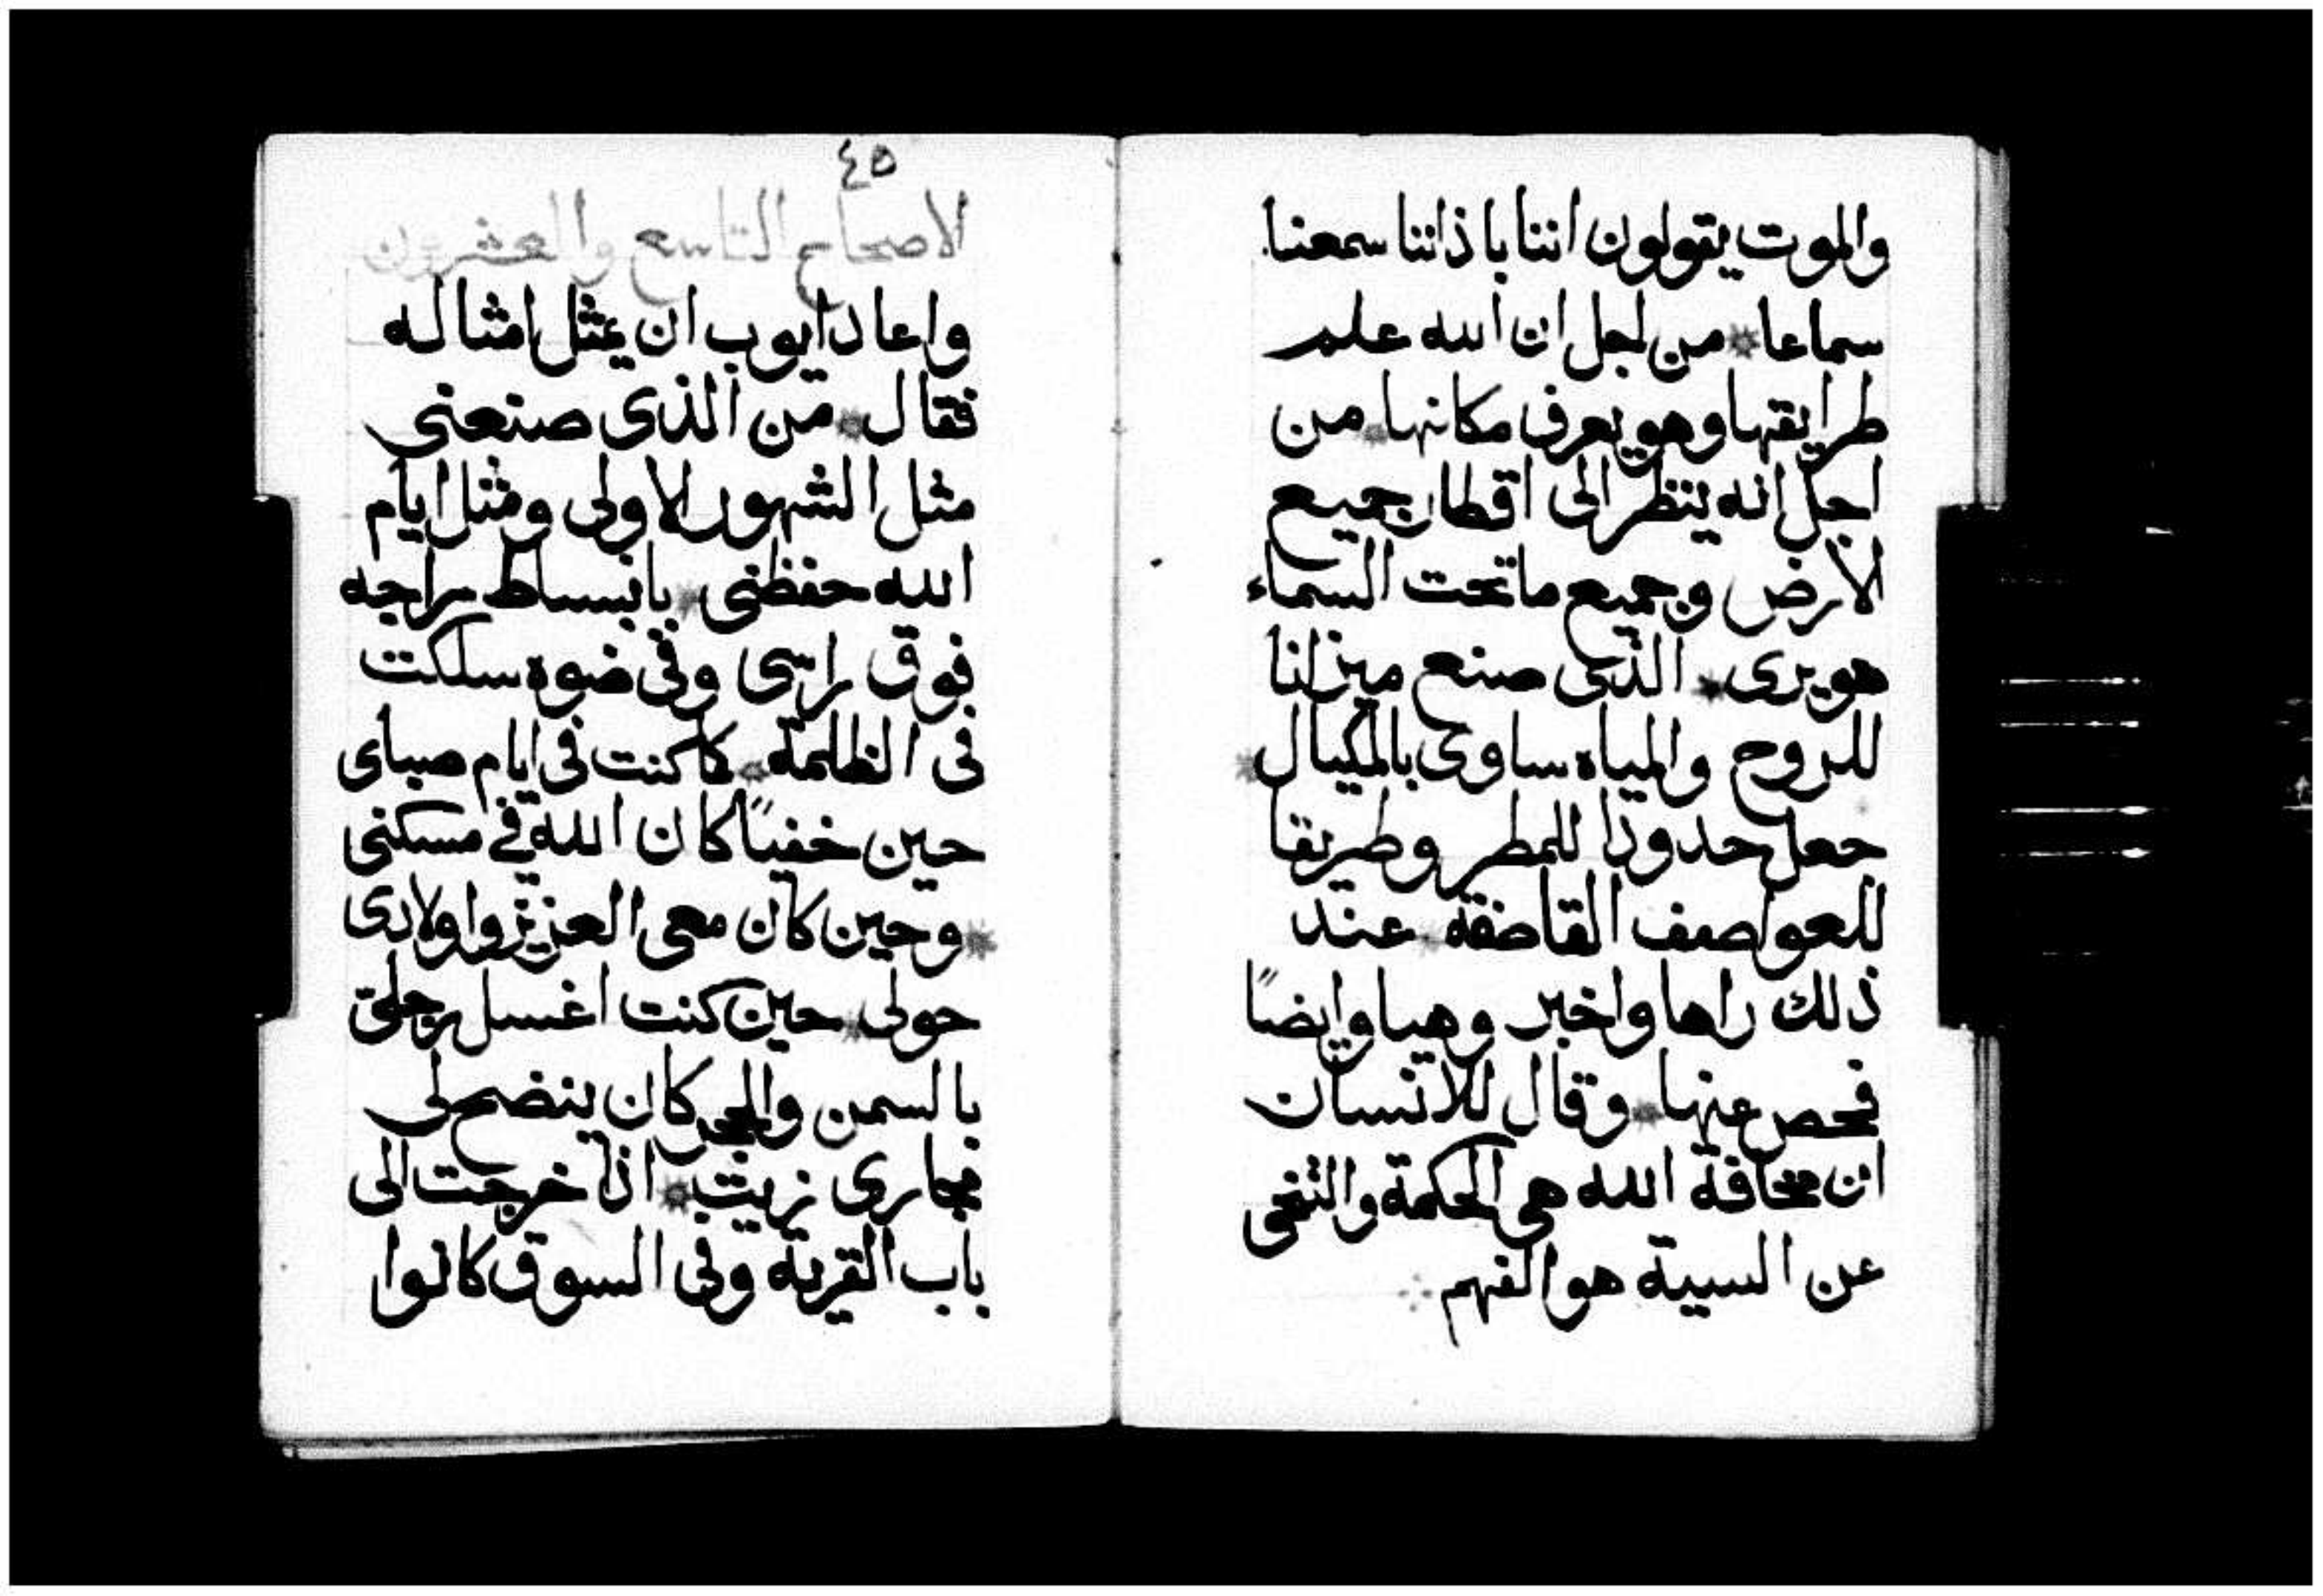 والموت يقولون اننا باذاننا سمعنا
سماعا * من اجل ان الله علم
طرايقها وهو يعرف مكانها * من
اجل انه ينظر الى اقطار جميع
الأرض وجميع ما تحت السماء
هو يرى * الذى صنع ميزانا
للروح والمياه ساوى بالمكيال *
جعل حدودا للمطر وطريقا
للعواصف القاصفة * عند
ذلك راها واخبر وهيا وايضًا
فحص عنها * وقال للانسان
ان مخافة الله هى الحكمة والتنحى
عن السية هو الفهم ∴
٤٥
الاصحاح التاسع والعشرون
واعاد ايوب ان يمثل امثاله
فقال * من الذى صنعنى
مثل الشهور الاولى ومثل ايام
الله حفظنى * بانبساط سراجه
فوق راسى وفى ضوه سلكت
فى الظلمة * كما كنت فى ايام صباى
حين خفيًا كان الله فى مسكنى
* وحين كان معى العزيز واولادى
حولى * حين كنت اغسل رجلى
بالسمن والحجر كان ينضح لى
مجارى زيت * اذا خرجت الى
باب القرية وفى السوق كانوا